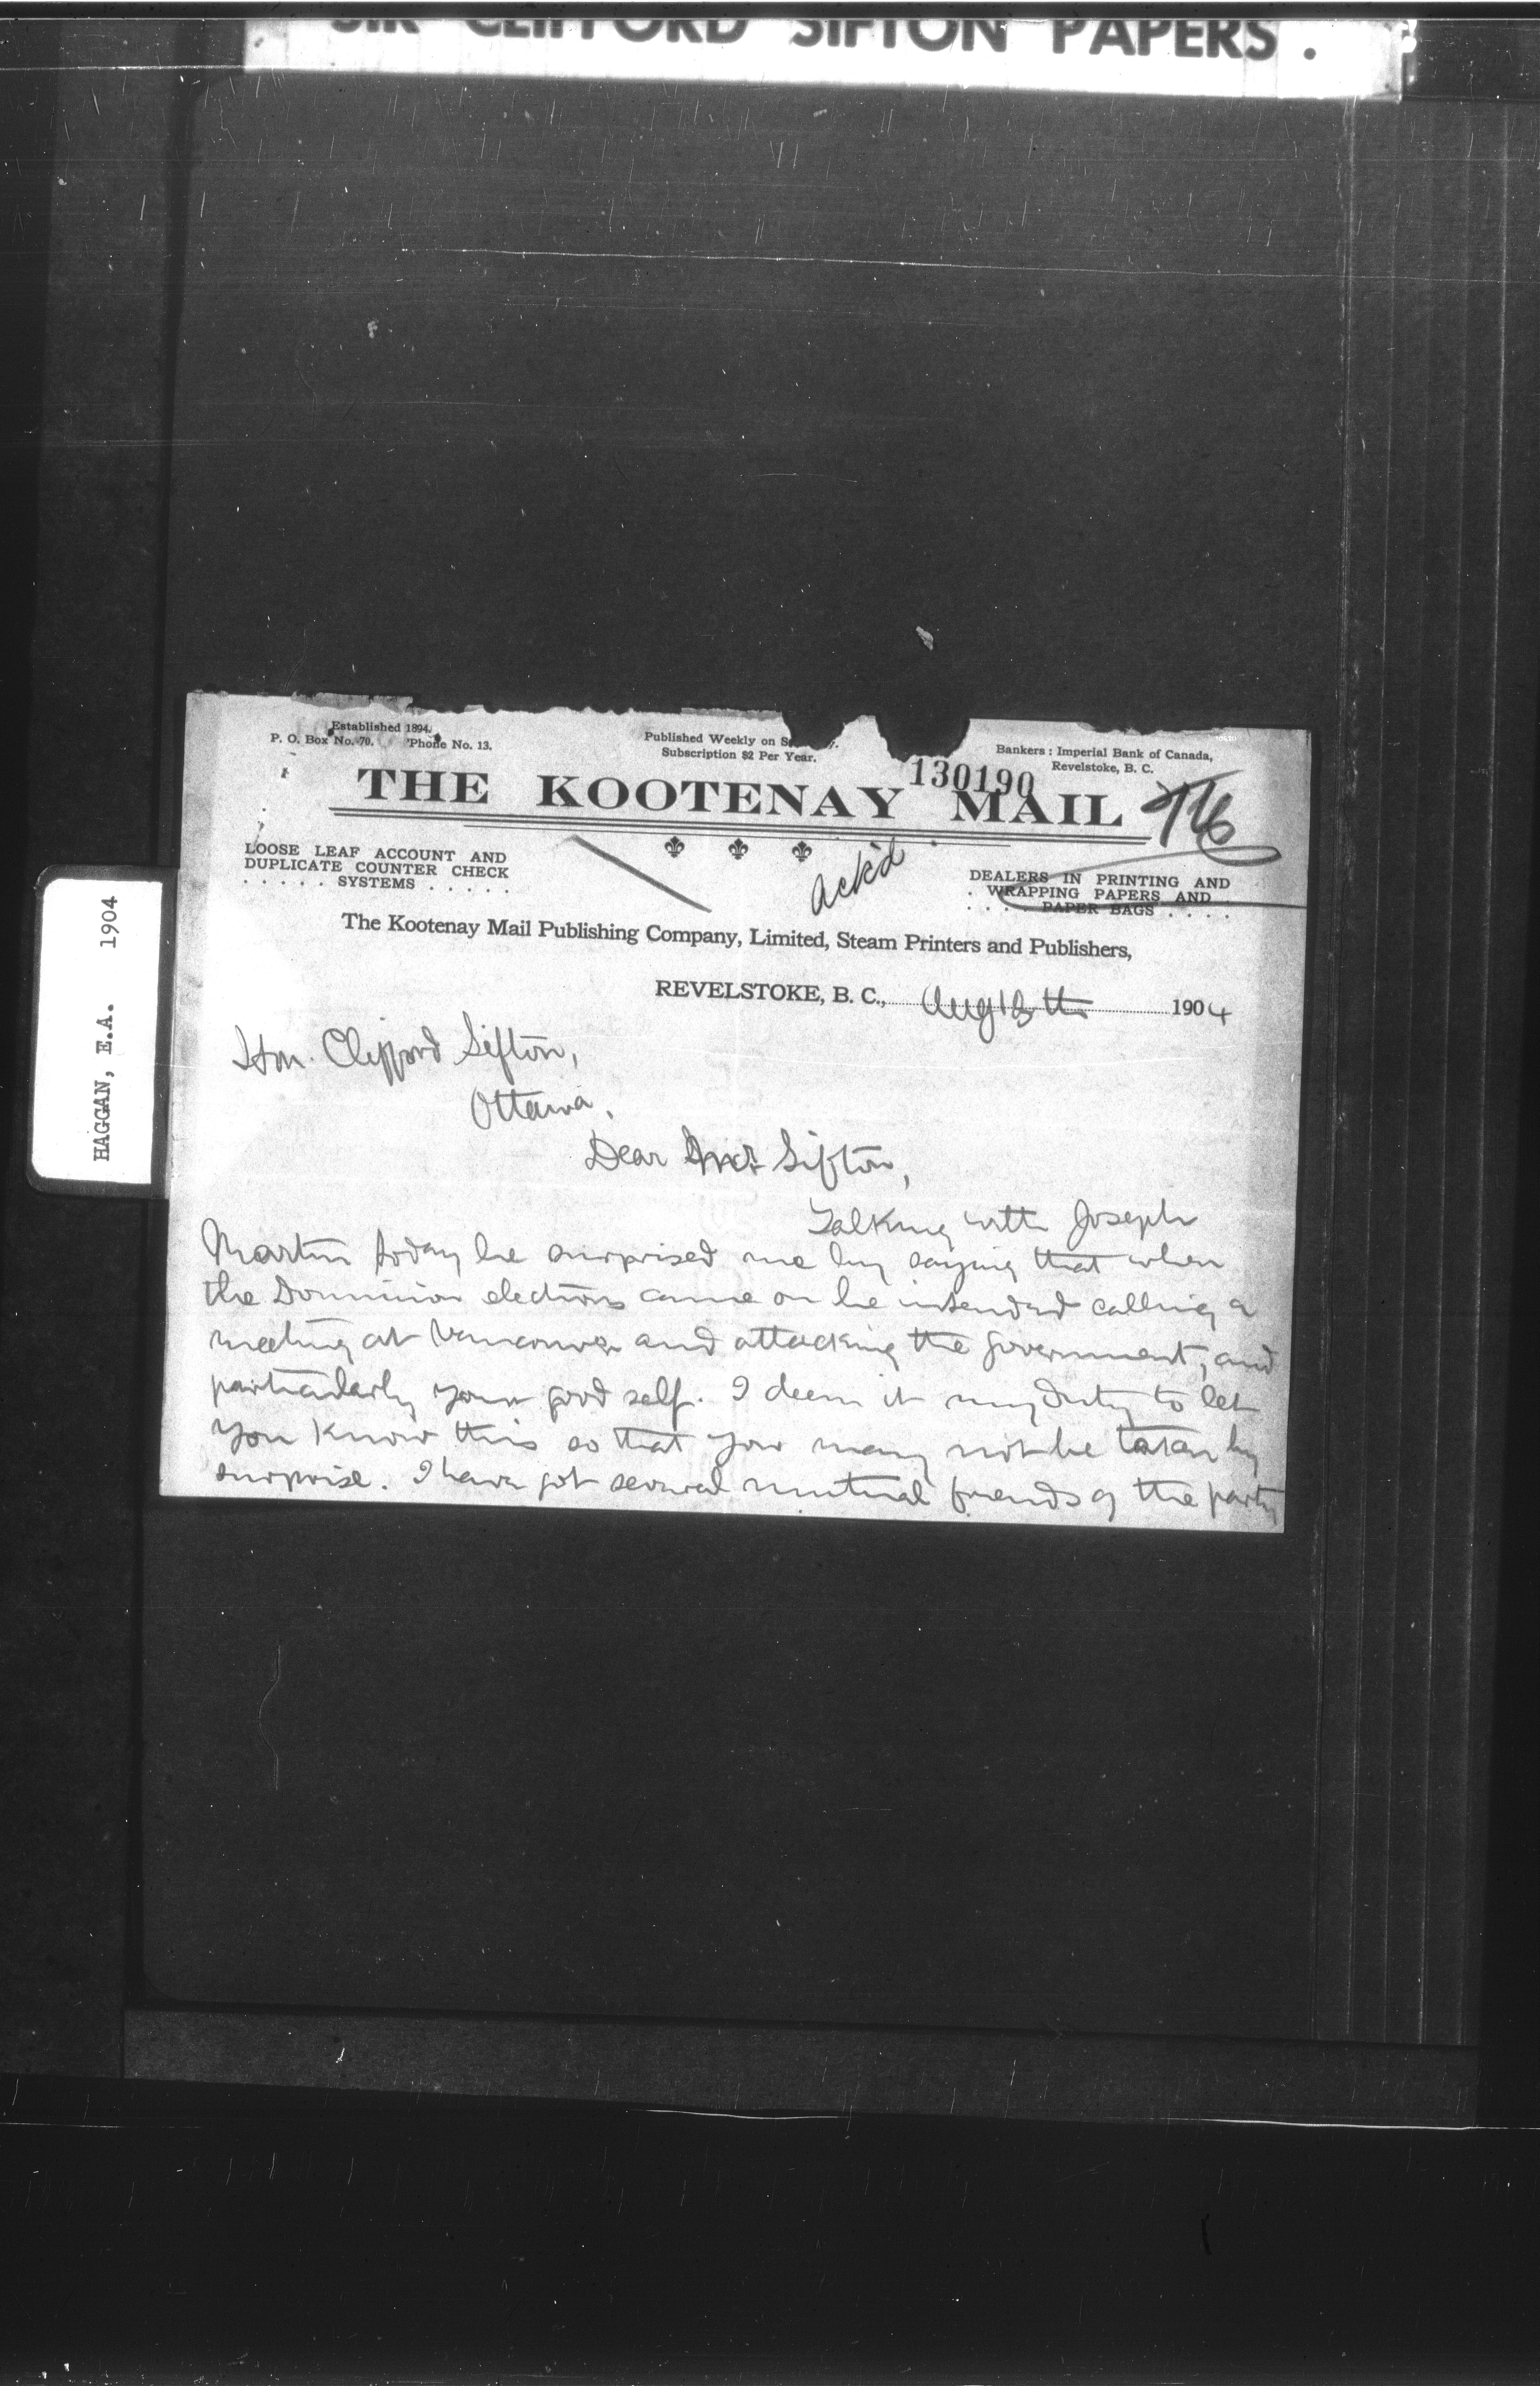 SIR CLIFFORD SIFTON PAPERS.
HAGGAN, E.A. 1904
Established 1894.
P. O. Box No. 70. 'Phone No. 13.
Published Weekly on
Subscription $2 Per Year.
Bankers : Imperial Bank of Canada,
Revelstoke, B. C.
130190
THE KOOTENAY MAIL
LOOSE LEAF ACCOUNT AND
DUPLICATE COUNTER CHECK
. . . . . SYSTEMS . . . . .
ack'd
DEALERS IN PRINTING AND
. WRAPPING PAPERS AND
. . . . PAPER BAGS . . . .
The Kootenay Mail Publishing Company, Limited, Steam Printers and Publishers,
REVELSTOKE, B. C., Aug 13th 1904
Hon. Clifford Sifton,
Ottawa,
Dear Mr Sifton,
Talking with Joseph
Martin today he surprised me by saying that when
the Dominion elections came on he intended calling a
meeting at Vancouver and attacking the government, and
particularly your good self. I deem it my duty to let
you know this so that you may not be taken by
surprise. I have got several mutual friends of the party